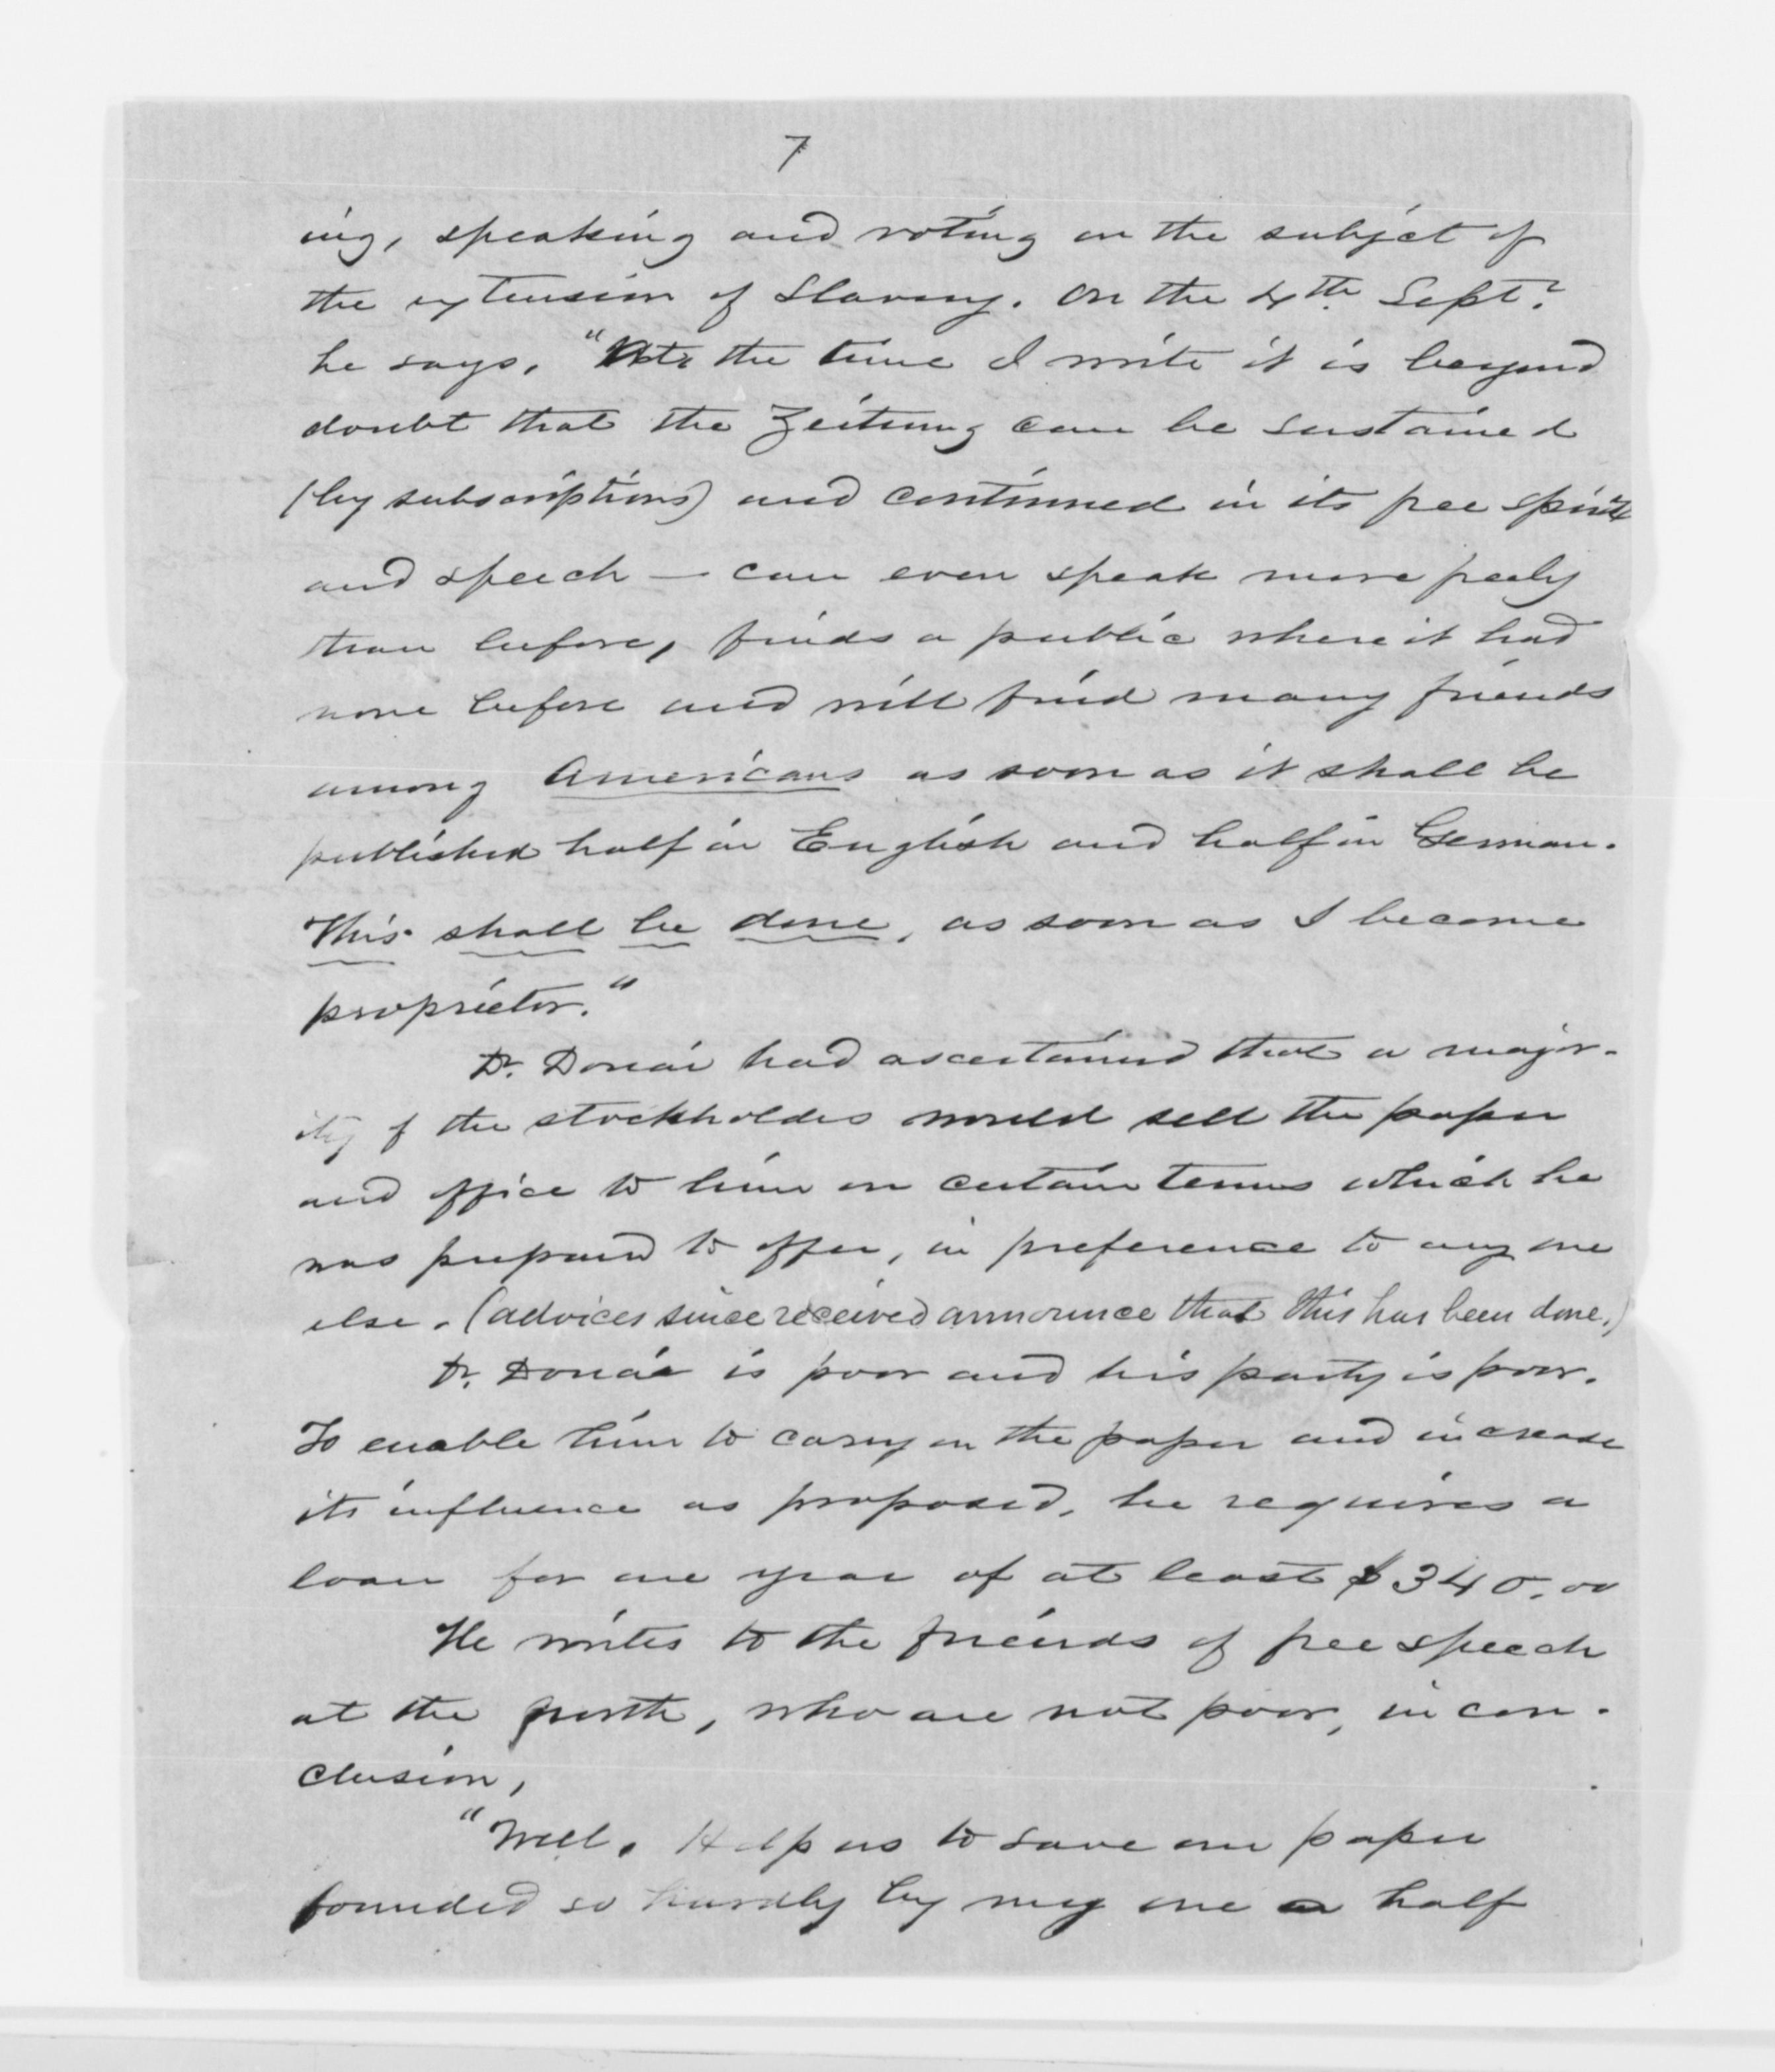 7
ing, speaking and voting on the subject of
the extension of Slavery. On the 4th Sept.
he says, "At the time I write it is beyond
doubt that the Zeitung can be sustained
(by subscriptions) and continued in its free spirit
and speech — can even speak more freely
than before, finds a public where it had
none before and will find many friends
among Americans as soon as it shall be
published half in English and half in German.
This shall be done, as soon as I become
proprietor."
Dr. Douai had ascertained that a major-
ity of the stockholders would sell the paper
and office to him on certain terms which he
was prepared to offer, in preference to any one
else. (advices since received announce that this has been done.)
Dr. Douai is poor and his party is poor.
To enable him to carry on the paper and increase
its influence as proposed, he requires a
loan for one year of at least $340.00
He writes to the friends of free speech
at the North, who are not poor, in con-
clusion,
"Well. Help us to save our paper
founded so hardly by my one a half